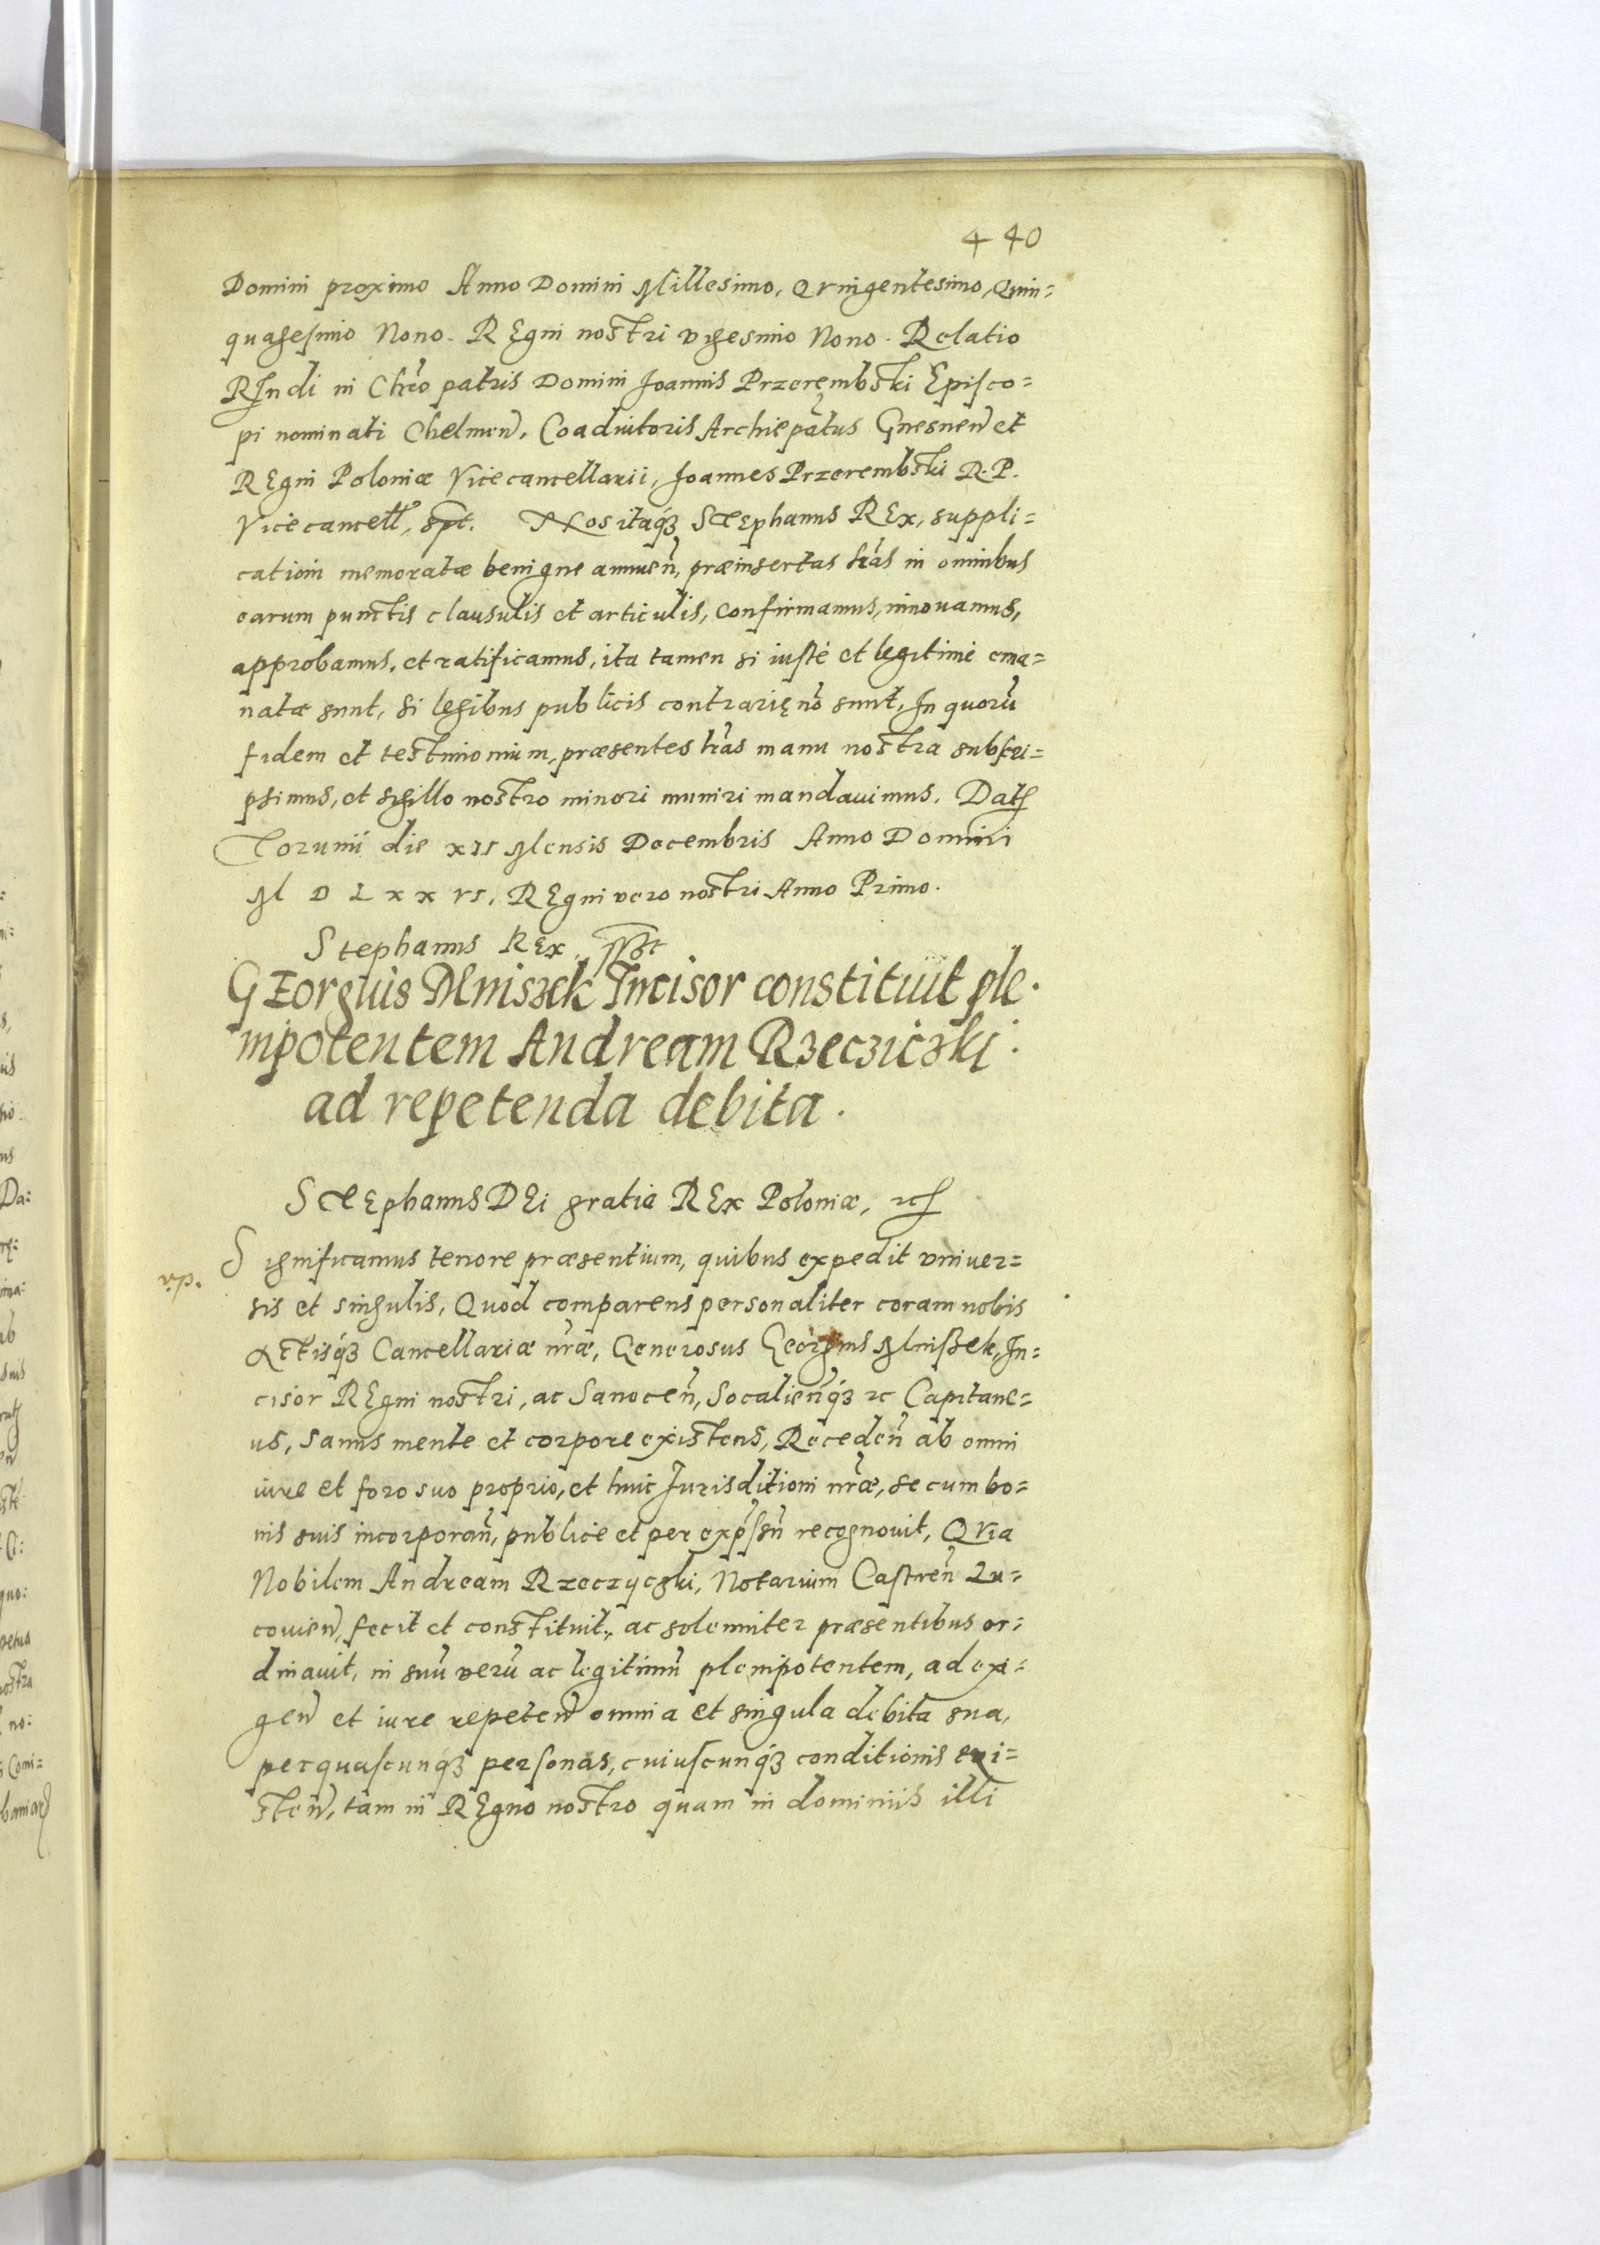 440
Domini proximo Anno Domini Millesimo, Qvingentesimo, Quin=
quagesimo Nono. REgni nostri vigesimo Nono. Relatio
RIndi in Chro patris Domini Joannis Przerembski Episco=
pi nominati Chelmen, Coadiutoris Archiepatus Gnesnen et
REgni Poloniæ Vicecancellarii, Joannes Przerembski R. P.
Vicecancell, spt. Nos itaq3 STEphanus REx, suppli=
cationi memoratæ benigne annuen, præinsertas lras in omnibus
earum punctis clausulis et articulis, confirmamus, innovamus,
approbamus, et ratificamus, ita tamen si iustè et legitimè ema=
natæ sunt, si legibus publicis contrarię no sunt, In quoru
fidem et testimonium, præsentes lras manu nostra subscri=
psimus, et sigillo nostro minori muniri mandauimus. Dat
Torunii die XII Mensis Decembris Anno Domini
M D L X X VI, REgni vero nostri Anno Primo.
Stephanus REx, sspt
GEorgius Mniszek Incisor constituit ple.
nipotentem Andream Rzecziczki.
ad repetenda debita.
STEphanus DEi gratia REx Poloniæ, etc
Significamus tenore præsentium, quibus expedit vniuer=
v.p.
sis et singulis, Quod comparens personaliter coram nobis
Actisq3 Cancellariæ nræ, Generosus Georgius Mnissek, In=
cisor REgni nostri, ac Sanocen, Socalienq3 etc Capitane=
us, sanus mente et corpore existens, Receden ab omni
iure et foro suo proprio, et huic Jurisditioni nræ, se cum bo=
nis suis incorporan, publice et per expssu recognovit, QVia
Nobilem Andream Rzeczyczki, Notarium Castren Lu=
couien, fecit et constituit, ac solemniter præsentibus or=
dinauit, in suu veru ac legitimu plenipotentem, ad exi=
gen et iure repeten omnia et singula debita sua,
per quascunq3 personas, cuiuscunq3 conditionis exi=
sten, tam in REgno nostro quam in dominiis illi